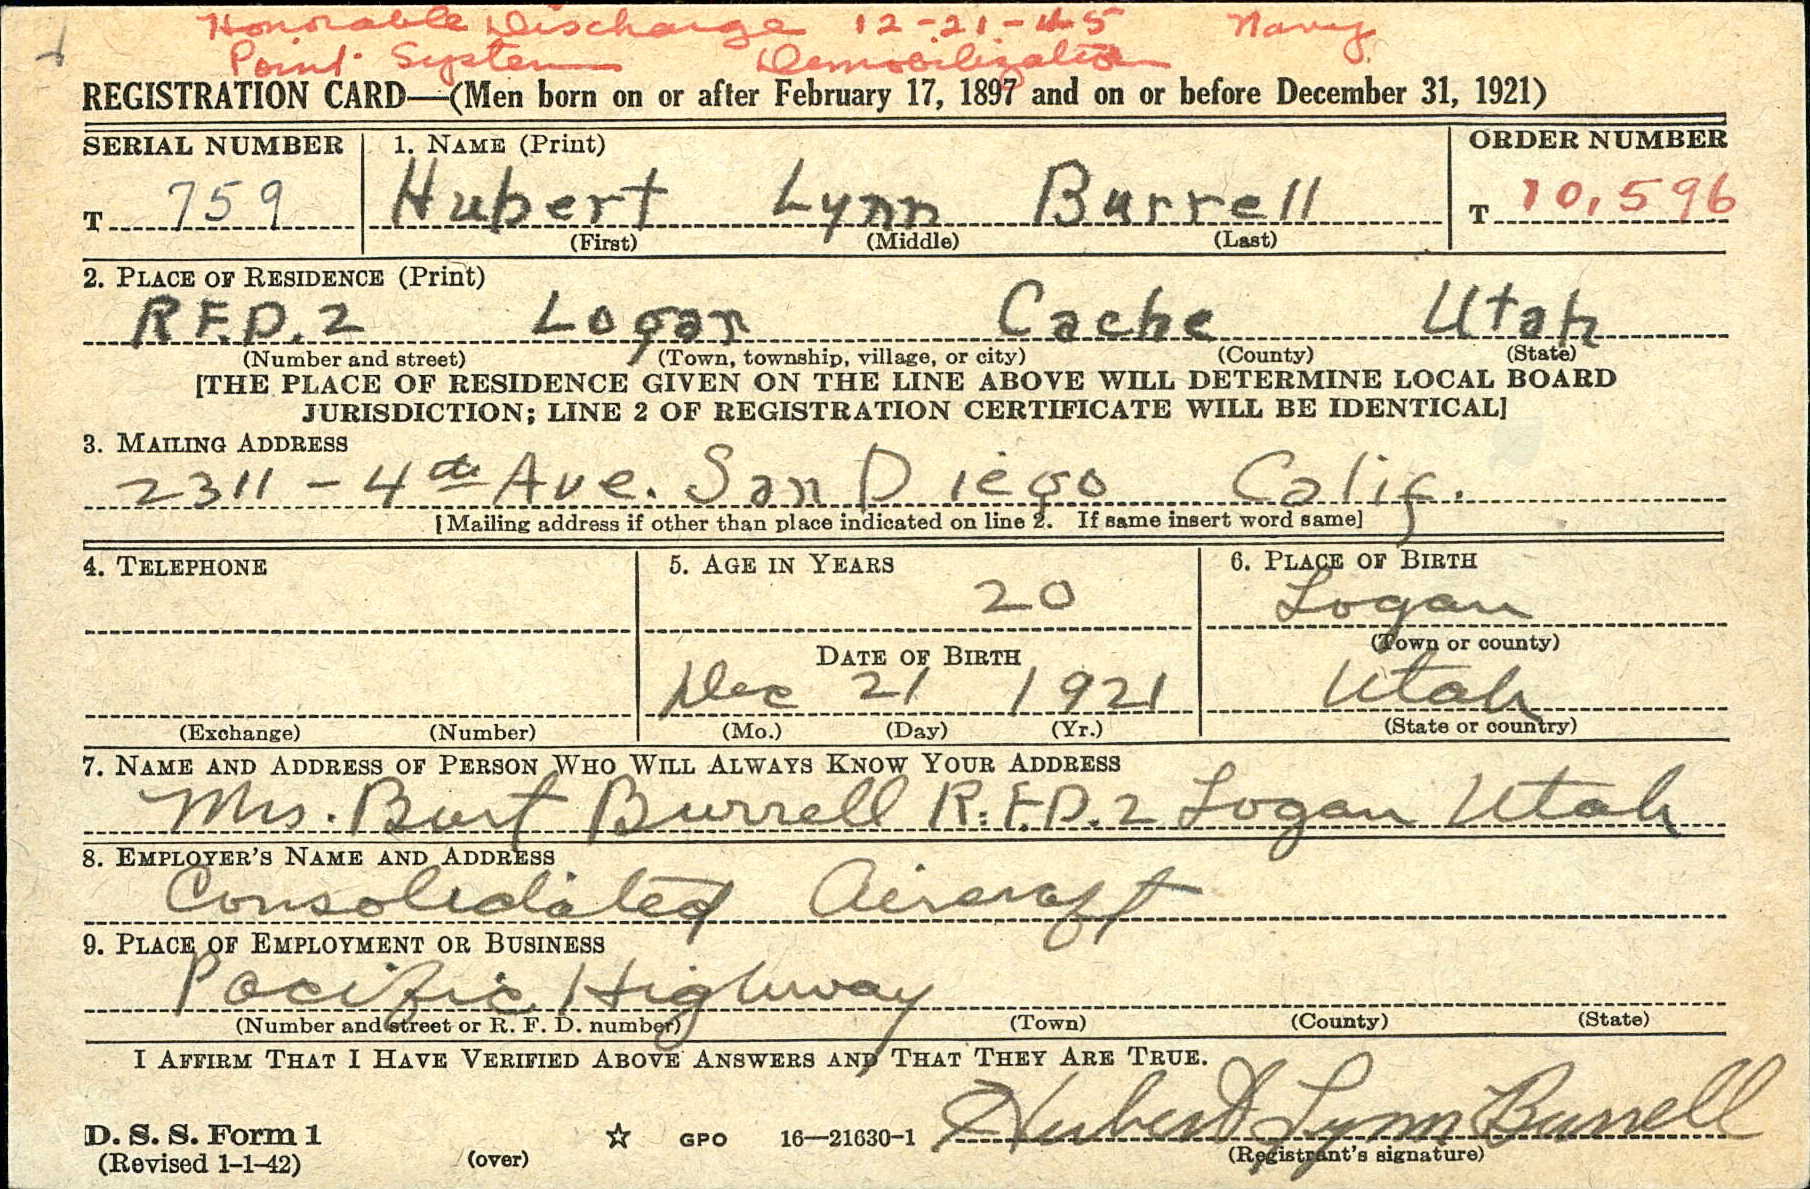 Honorable Discharge 12-21-45 Navy
Point System Demobilization
REGISTRATION CARD—(Men born on or after February 17, 1897 and on or before December 31, 1921)
SERIAL NUMBER 1. NAME (Print) ORDER NUMBER
T 759 Hubert Lynn Burrell T 10,596
(First) (Middle) (Last)
2. PLACE OF RESIDENCE (Print)
R.F.D. 2 Logan Cache Utah
(Number and street) (Town, township, village, or city) (County) (State)
[THE PLACE OF RESIDENCE GIVEN ON THE LINE ABOVE WILL DETERMINE LOCAL BOARD
JURISDICTION; LINE 2 OF REGISTRATION CERTIFICATE WILL BE IDENTICAL]
3. MAILING ADDRESS
2311 - 4th Ave. San Diego Calif.
[Mailing address if other than place indicated on line 2. If same insert word same]
4. TELEPHONE 5. AGE IN YEARS 6. PLACE OF BIRTH
20 Logan
(Town or county)
DATE OF BIRTH
Dec 21 1921 Utah
(Exchange) (Number) (Mo.) (Day) (Yr.) (State or country)
7. NAME AND ADDRESS OF PERSON WHO WILL ALWAYS KNOW YOUR ADDRESS
Mrs. Burt Burrell R.F.D. 2 Logan Utah
8. EMPLOYER'S NAME AND ADDRESS
Consolidated Aircraft
9. PLACE OF EMPLOYMENT OR BUSINESS
Pacific Highway
(Number and street or R. F. D. number) (Town) (County) (State)
I AFFIRM THAT I HAVE VERIFIED ABOVE ANSWERS AND THAT THEY ARE TRUE.
Hubert Lynn Burrell
D. S. S. Form 1 ☆ GPO 16—21630-1
(Revised 1-1-42) (over) (Registrant's signature)